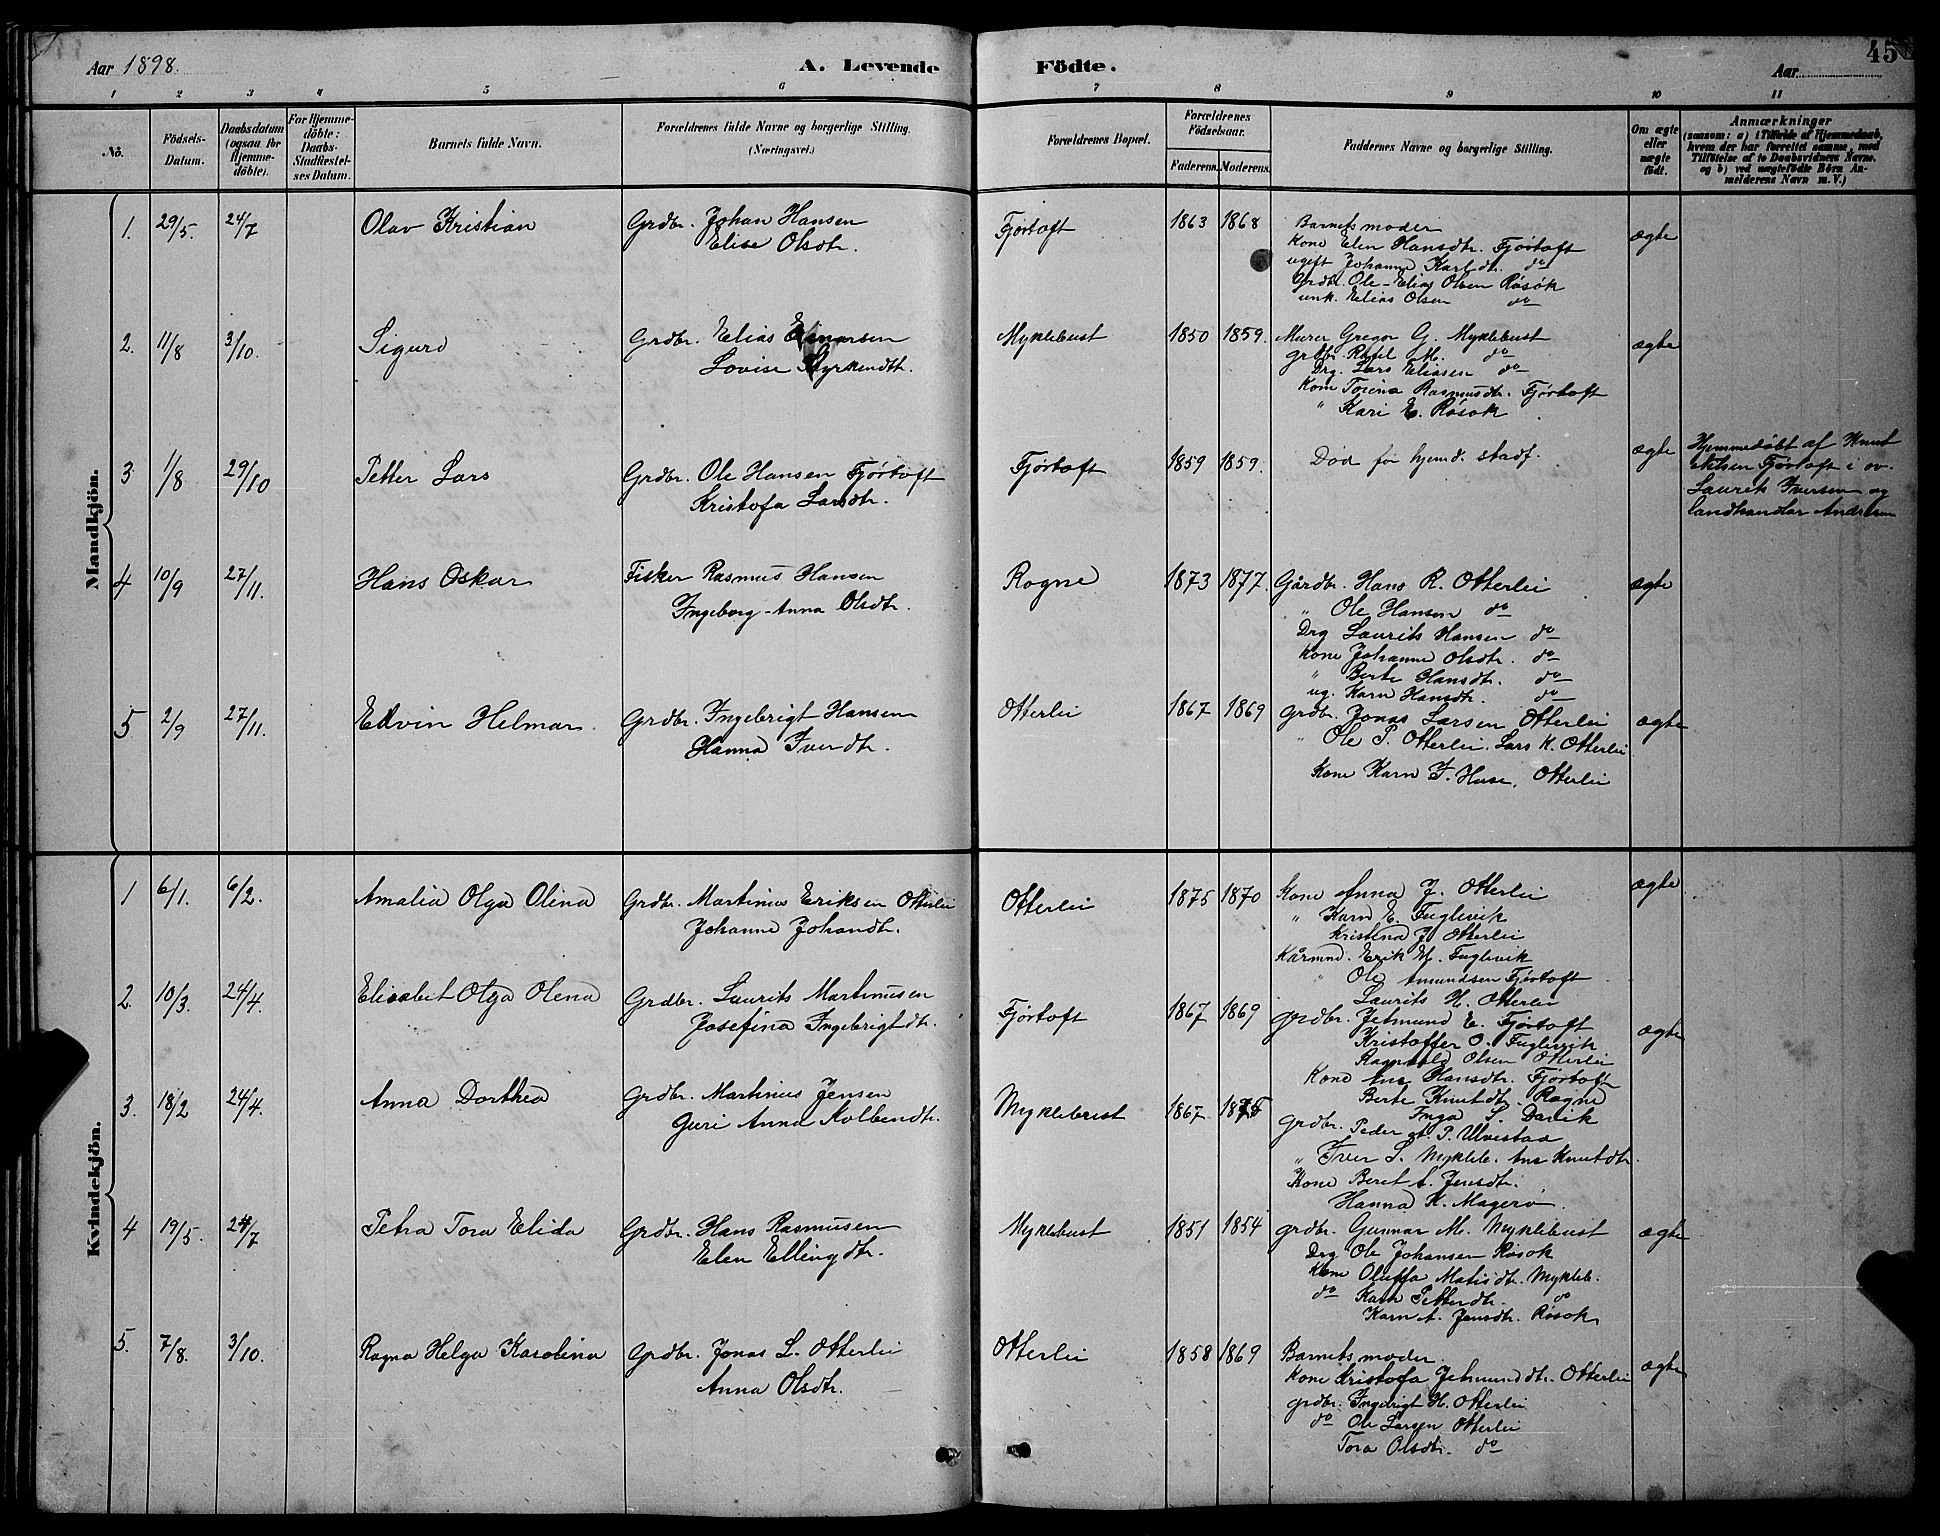 Aar 1898. A. Levende Födte. Aar 45
1 2 3 4 5 6 7 8 9 10 11
No. Födsels-Datum. Daabsdatum (ogsaa for Hjemmedöbte). For Hjemmedöbte: Daabs-Stadfæstelses Datum. Barnets fulde Navn. Forældrenes fulde Navne og borgerlige Stilling. (Næringsvei.) Forældrenes Bopæl. Forældrenes Födselsaar. Faderens. Moderens. Faddernes Navne og borgerlige Stilling. Om ægte eller uægte födt. Anmærkninger (saasom: a) i Tilfælde af Hjemmedaab, hvem der har forrettet samme, med Tilföielse af to Daabsvidners Navne, og b) ved uægtefödte Börn Anmelderens Navn m.V.)
Mandkjön.
1. 29/5. 24/7 Olav Kristian Grdbr. Johan Hansen Fjørtoft 1863 1868 Barnets moder ægte
Elise Olsdtr. Kone Elen Hansdtr. Fjørtoft
ugift Johanne Karlsdtr. do
Grdbr. Ole-Elias Olsen Røsøk
unk. Elias Olsen do
2. 11/8 3/10. Sigurd Grdbr. Elias Myklebust 1850 1859. Murer Gregor G. Myklebust ægte
Lovise grdbr. M. do
Drg. Lars Eliasen do
Kone Torina Rasmusdtr. Fjørtoft
" Kari E. Røsok
3 1/8 29/10 Petter Lars Grdbr. Ole Hansen Fjørtoft Fjørtoft 1859 1859. Død før hjemd. stadf. ægte Hjemmedøbt af Knut
Kristofa Larsdtr. Nilsen Fjørtoft i ov.
Laurits Iversen og
landhandlar Andersen
4 10/9 27/11. Hans Oskar Fisker Rasmus Hansen Rogne 1873 1877. Gårdbr. Hans R. Otterlei ægte
Ingeborg-Anna Olsdtr. " Ole Hansen do
Drg Laurits Hansen do
Kone Johanne Olsdtr. do
" Berte Hansdtr. do
ug. Karn Hansdtr. do
5 2/9 27/11. Edvin Helmar. Grdbr. Ingebrigt Hansen Otterlei 1867 1869 Grdbr. Jonas Larsen Otterlei ægte
Hanna Iversdtr. " Ole P. Otterlei, Lars K. Otterlei
Kone Karn I. Huse, Otterlei
Kvindekjön.
1 6/1. 6/2. Amalia Olga Olina Grdbr. Martinus Eriksen Otterlei Otterlei 1875 1870 Kone Anna J. Otterlei ægte
Johanne Johandtr. " Karn E. Fuglevik
Kristina J. Otterlei
Kårmnd. Erik M. Fuglevik
" Ole Amundsen Fjørtoft
Laurits H. Otterlei
2. 10/3. 24/4. Elisabet Olga Olena Grdbr. Laurits Martinusen Fjørtoft 1867 1869 grdbr. Jetmund E. Fjørtoft ægte
Josefina Ingebrigtdtr. Kristoffer O. Fuglevik
Ragnvald Olsen Otterlei
Kone Ane Hansdtr. Fjørtoft
Berte Knutdtr. Rogne
Inga S. Davik
3. 18/2 24/4. Anna Dorthea Grdbr. Martinius Jensen Myklebust 1867 1875 grdbr. Peder P. Ulvestad
Guri Anna Kolbendtr. " Iver L. Mykleb. Ane Knutdtr.
Kone Beret A. Jensdtr.
Hanna K. Magerø
4 19/5. 24/7 Petra Tora Elida Grdbr. Hans Rasmusen Myklebust 1851 1854 grdbr. Gunnar M. Myklebust ægte
Elen Ellingdtr. Drg Ole Johansen Røsok
Kone Oluffa Matisdtr. Mykleb.
do Karn Petterdtr. do
Karn A. Jensdtr. Røsok
5. 7/8. 3/10. Ragna Helga Karolina Grdbr. Jonas L. Otterlei Otterlei 1858 1869 Barnets moder. ægte
Anna Olsdtr. Kone Kristofa Jetmunddtr. Otterlei
grdbr. Ingebrigt H. Otterlei
do Ole Larsen Otterlei
Tora Olsdtr. do